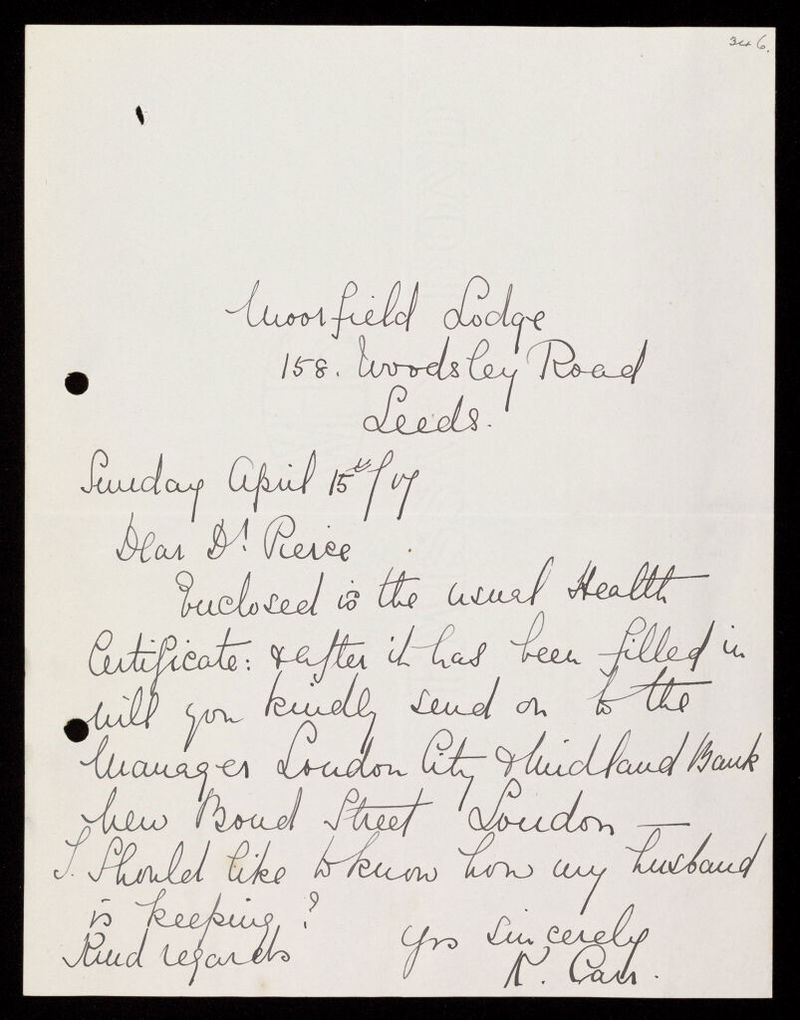 346.
Moorfield Lodge
158. Woodsley Road
Leeds.
Sunday April 15th/17
Dear Dr. Pierce
Enclosed is the usual Health
Certificate: & after it has been filled in
will you kindly send on to the
Manager London City & Midland Bank
New Bond Street London —
I. Should like to know how my husband
is keeping?
Kind regards Yrs sincerely
K. Carr.